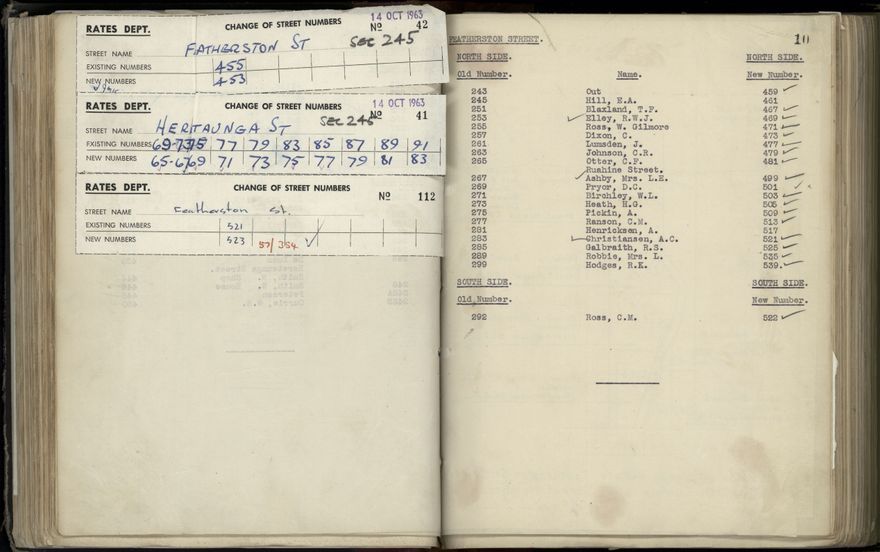 RATES DEPT. CHANGE OF STREET NUMBERS 14 OCT 1963
No 42
STREET NAME FATHERSTON ST SEC 245
EXISTING NUMBERS 455
NEW NUMBERS 453
RATES DEPT. CHANGE OF STREET NUMBERS 14 OCT 1963
No 41
STREET NAME HERITAUNGA ST SEC 245
EXISTING NUMBERS 69-7375 77 79 83 85 87 89 91
NEW NUMBERS 65-6769 71 73 75 77 79 81 83
RATES DEPT. CHANGE OF STREET NUMBERS
No 112
STREET NAME Featherston St.
EXISTING NUMBERS 521
NEW NUMBERS 523 57/354 ✓
FEATHERSTON STREET. 10
NORTH SIDE. NORTH SIDE.
Old Number. Name. New Number.
243 Out 459 ✓
245 Hill, E.A. 461
251 Blaxland, T.F. 467 ✓
253 ✓ Elley, R.W.J. 469 ✓
255 Ross, W. Gilmore 471 ✓
257 Dixon, C. 473 ✓
261 Lumsden, J. 477 ✓
263 Johnson, C.R. 479 ✓
265 Otter, C.F. 481 ✓
Ruahine Street.
267 ✓ Ashby, Mrs. L.E. 499 ✓
269 Pryor, D.C. 501 ✓
271 Birchley, W.L. 503 ✓
273 Heath, H.G. 505 ✓
275 Pickin, A. 509 ✓
277 Ranson, C.M. 513 ✓
281 Henricksen, A. 517
283 ✓ Christiansen, A.C. 521 ✓
285 Galbraith, R.S. 525 ✓
289 Robbie, Mrs. L. 535 ✓
299 Hodges, R.K. 539. ✓
SOUTH SIDE. SOUTH SIDE.
Old Number. New Number.
292 Ross, C.M. 522 ✓